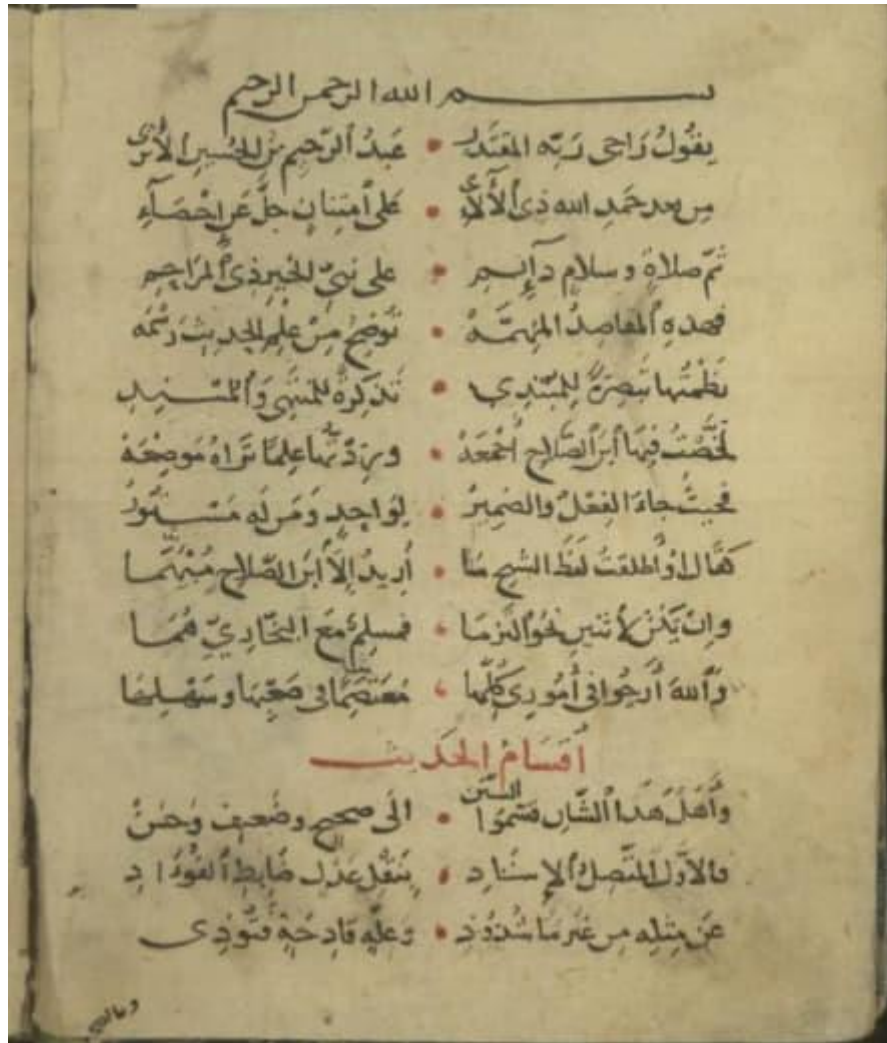 بسم الله الرحمن الرحيم
يقُولُ رَاجي رَبّه المقتَدر • عَبدُ ٱلرّحيم بنُ الحُسين الأثري
مِن بعد حَمدِ الله ذي الآلاءِ • عَلى ٱمتِنانٍ جلَّ عَن إحْصَآءِ
ثمّ صلاةٍ وسلامٍ دَآيمِ • على نبيّ الخيرِ ذي المرَاحِمِ
فهذهِ ٱلمقاصِدُ المهِمّهْ • تُوضِحُ مِنْ عِلْمِ الحديثِ رَسْمَه
نظمتُها تبصِرَةً لِلمبتدِي • تَذكِرةً للمنتهِي وَٱلمُسْنِدِ
لخّصتُ فيهَا ٱبنَ ٱلصَّلاح أجْمَعَهْ • وزِدْتُها عِلمًا تَرَاهُ مَوضِعَهْ
فحيثُ جاءَ الفِعْلُ والضميرُ • لِوَاحِدٍ وَمَن لَه مَسْتُورُ
كقَالَ أوْ أطلقتُ لَفظَ الشيخِ مَا • أُريدُ إلاَّ ٱبنَ الصَّلاحِ مُبْهَمَا
وإن يَكُنْ لاثنَينِ نحْوُ التزمَا • فمسلِمٌ مَعَ البُخَارِيِّ هُمَا
وَٱللهَ أَرجُوا في أُمُورِي كُلِّهَا • مُعتَصَمًا في صَعْبِهَا وسَهْلِهَا
أقسَامُ الحَديث
وأهْلُ هَذا ٱلشّانِ قسّمُوا السّنن • الى صحيحٍ وضَعيفٍ وحَسَنْ
فالأوّلُ المتّصلُ ٱلإسنَادِ • بنَقْلِ عَدْلٍ ضابِطِ ٱلفؤَادِ
عَن مِثلِه مِن غيرِ مَا شُذُوذِ • وَعِلَّةٍ قادِحَةٍ فتُوذِي